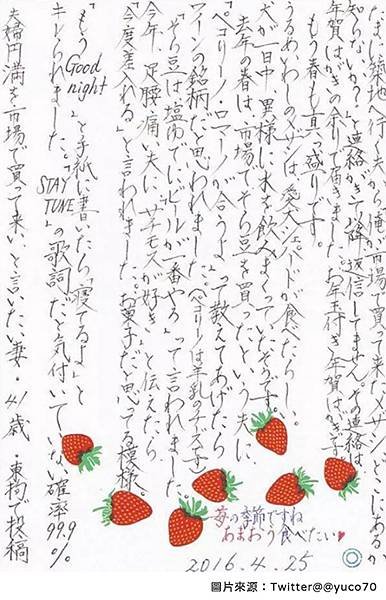 たまに築地へ行く夫から「俺が市場で買って来たメザシ、どこにあるか
知らないか?」と連絡がきて以降、返信してません。その連絡は
年賀はがきの余りで届きました。お年玉付き年賀はがきです。
もう春も真っ盛りです。
うるめいわしのメザシは、愛犬シェパードが食べたらしく
犬が一日中、異様に水を飲みまくっていたそうです。
去年の春は、市場でそら豆を買ったという夫に
「ペコリーノ・ロマーノが合うよ」って教えてあげたら
ワインの銘柄だと思われました。(ペコリーノは羊乳のチーズです)
「そら豆は塩ゆでしてビールが一番やろ」って言われました。
今年、足腰痛い夫に「サチモスが好き」と伝えたら、
「今度差入れる」と言われました。お菓子だと思ってる模様。
「もう Good night」と手紙に書いたら「寝てるよ」と
キレられました。「STAY TUNE」の歌詞だと気付いていない確率99.9%
夫婦円満を市場で買って来い、と言いたい妻・41歳・東拘で投稿
苺の季節ですね
あまおう食べたい♥
2016.4.25
圖片來源:Twitter@@yuco70